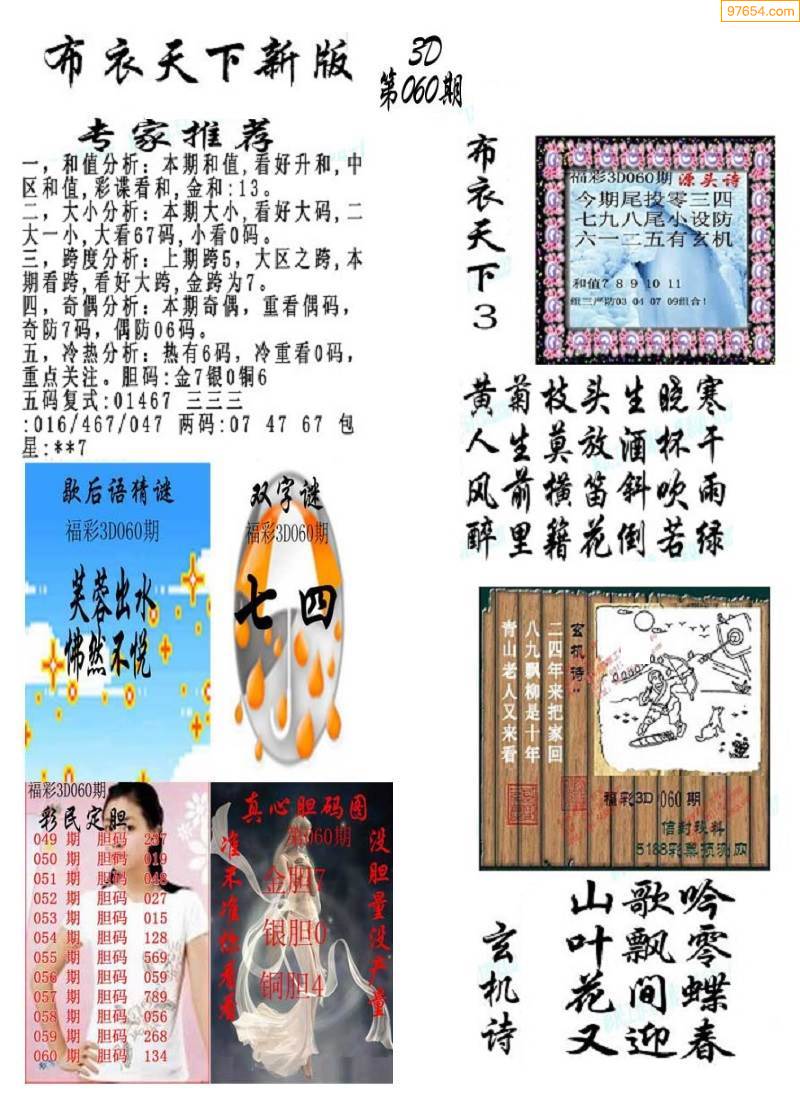 97654.com
布衣天下新版
3D
第060期
专家推荐
一，和值分析：本期和值,看好升和,中
区和值,彩谍看和,金和:13。
二，大小分析：本期大小,看好大码,二
大一小,大看67码,小看0码。
三，跨度分析：上期跨5，大区之跨,本
期看跨,看好大跨,金跨为7。
四，奇偶分析：本期奇偶，重看偶码，
奇防7码，偶防06码。
五，冷热分析：热有6码，冷重看0码，
重点关注。胆码:金7银0铜6
五码复式:01467 三三三
:016/467/047 两码:07 47 67 包
星:**7
布衣天下3
福彩3D060期 源头诗
今期尾投零三四
七九八尾小设防
六一二五有玄机
和值7 8 9 10 11
组三严防03 04 07 09组合!
黄菊枝头生晓寒
人生莫放酒杯干
风前横笛斜吹雨
醉里籍花倒若绿
歇后语猜谜
福彩3D060期
芙蓉出水
怫然不悦
双字谜
福彩3D060期
七 四
玄机诗
二四年来把家回
八九飘柳是十年
青山老人又来看
福彩3D 060期
5188彩票预测网
福彩3D060期
彩民定胆
049 期 胆码 237
050 期 胆码 019
051 期 胆码 048
052 期 胆码 027
053 期 胆码 015
054 期 胆码 128
055 期 胆码 569
056 期 胆码 059
057 期 胆码 789
058 期 胆码 056
059 期 胆码 268
060 期 胆码 134
真心胆码图
第060期
准不准你看看
金胆7
银胆0
铜胆4
没胆量没产量
玄机诗
山歌吟
叶飘零
花间蝶
又迎春